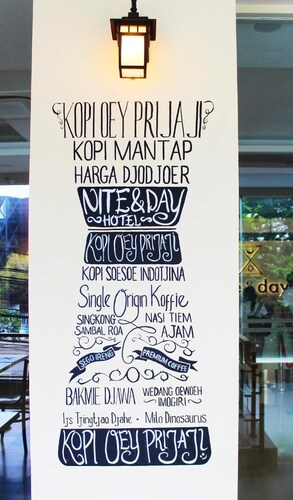 KOPI OEY PRIJAJI
KOPI MANTAP
HARGA DJODJOER
NITE&DAY
HOTEL
KOPI OEY PRIJAJI
KOPI SOESOE INDOTJINA
Single Origin Koffie
SINGKONG SAMBAL ROA
NASI TIEM AJAM
SEGO IRENG
PREMIUM COFFEE
BAKMIE DJAWA
WEDANG OEWOEH IMOGIRI
Ijs Tjingtjao Djahe • Milo Dinosaurus
KOPI OEY PRIJAJI
e&day